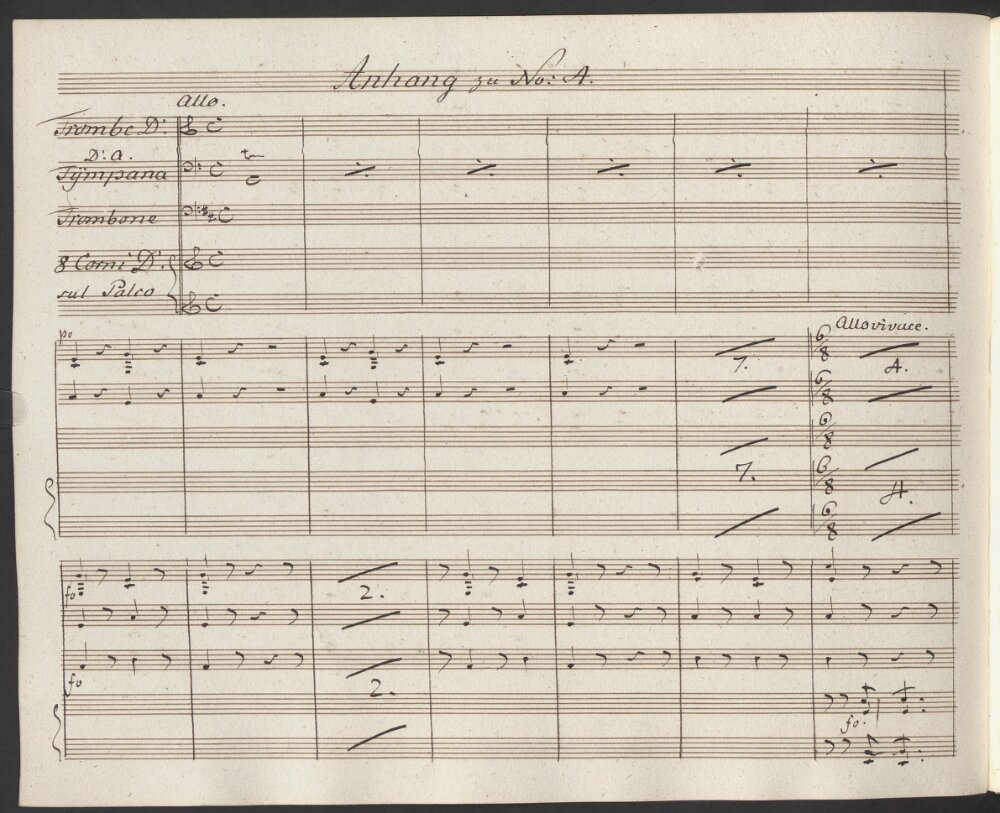 Anhang zu No: 4.
Allo.
Trombe D:
D: a.
Tÿmpana
Trombone
8 Corni D:
sul Palco
po
Allo vivace.
6 8
7.
4.
6 8
6 8
7.
6 8
4.
6 8
fo
2.
fo
2.
fo.